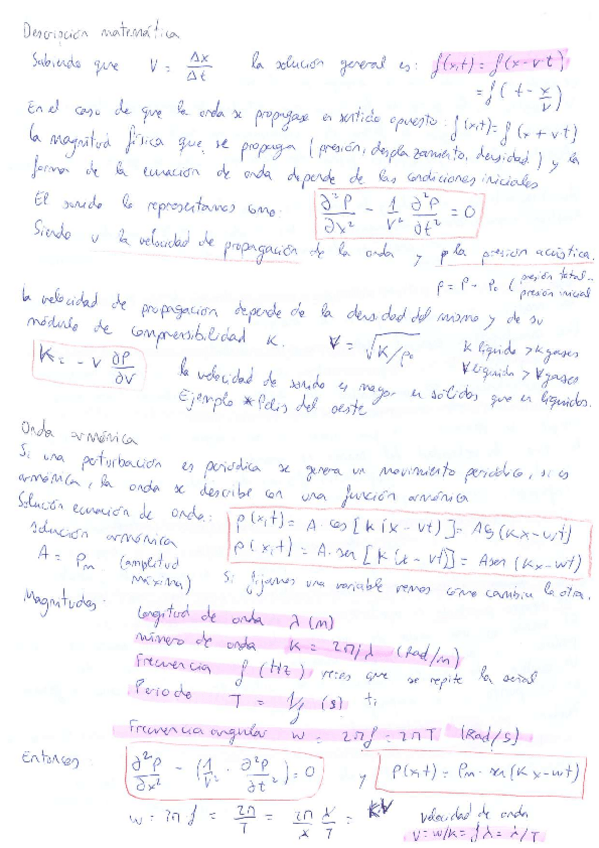 Descripción matemática
Sabiendo que V = Δx/Δt la solución general es: f(x,t) = f(x-vt)
= f(t - x/v)
En el caso de que la onda se propagase en sentido opuesto: f(x,t) = f(x+vt)
la magnitud física que se propaga (presión, desplazamiento, densidad) y la
forma de la ecuación de onda depende de las condiciones iniciales
El sonido lo representamos como: ∂²P/∂x² - 1/V² ∂²P/∂t² = 0
Siendo v la velocidad de propagación de la onda y p la presión acústica.
p = P - P₀ (presión total - presión inicial
la velocidad de propagación depende de la densidad del mismo y de su
módulo de compresibilidad K. V = √K/ρ₀ K liquido > K gases
K = -V ∂P/∂V V liquido > V gases
la velocidad de sonido es mayor en sólidos que en líquidos.
Ejemplo * Pelis del oeste
Onda armónica
Si una perturbación es periódica se genera un movimiento periódico, si es
armónica, la onda se describe con una función armónica
Solución ecuación de onda: p(x,t) = A·cos[K(x-vt)] = A cos(Kx-wt)
solución armónica p(x,t) = A·sen[K(x-vt)] = A sen(Kx-wt)
A = Pm (amplitud máxima) Si fijamos una variable vemos como cambia la otra.
Magnitudes: Longitud de onda λ (m)
número de onda K = 2π/λ (Rad/m)
Frecuencia f (Hz) veces que se repite la señal
Periodo T = 1/f (s)
Frecuencia angular w = 2πf = 2πT (Rad/s)
Entonces: ∂²P/∂x² - (1/V² · ∂²P/∂t²) = 0 y P(x,t) = Pm · sen(Kx-wt)
w = 2πf = 2π/T = 2π/λ λ/T = KV velocidad de onda
V = w/K = fλ = λ/T